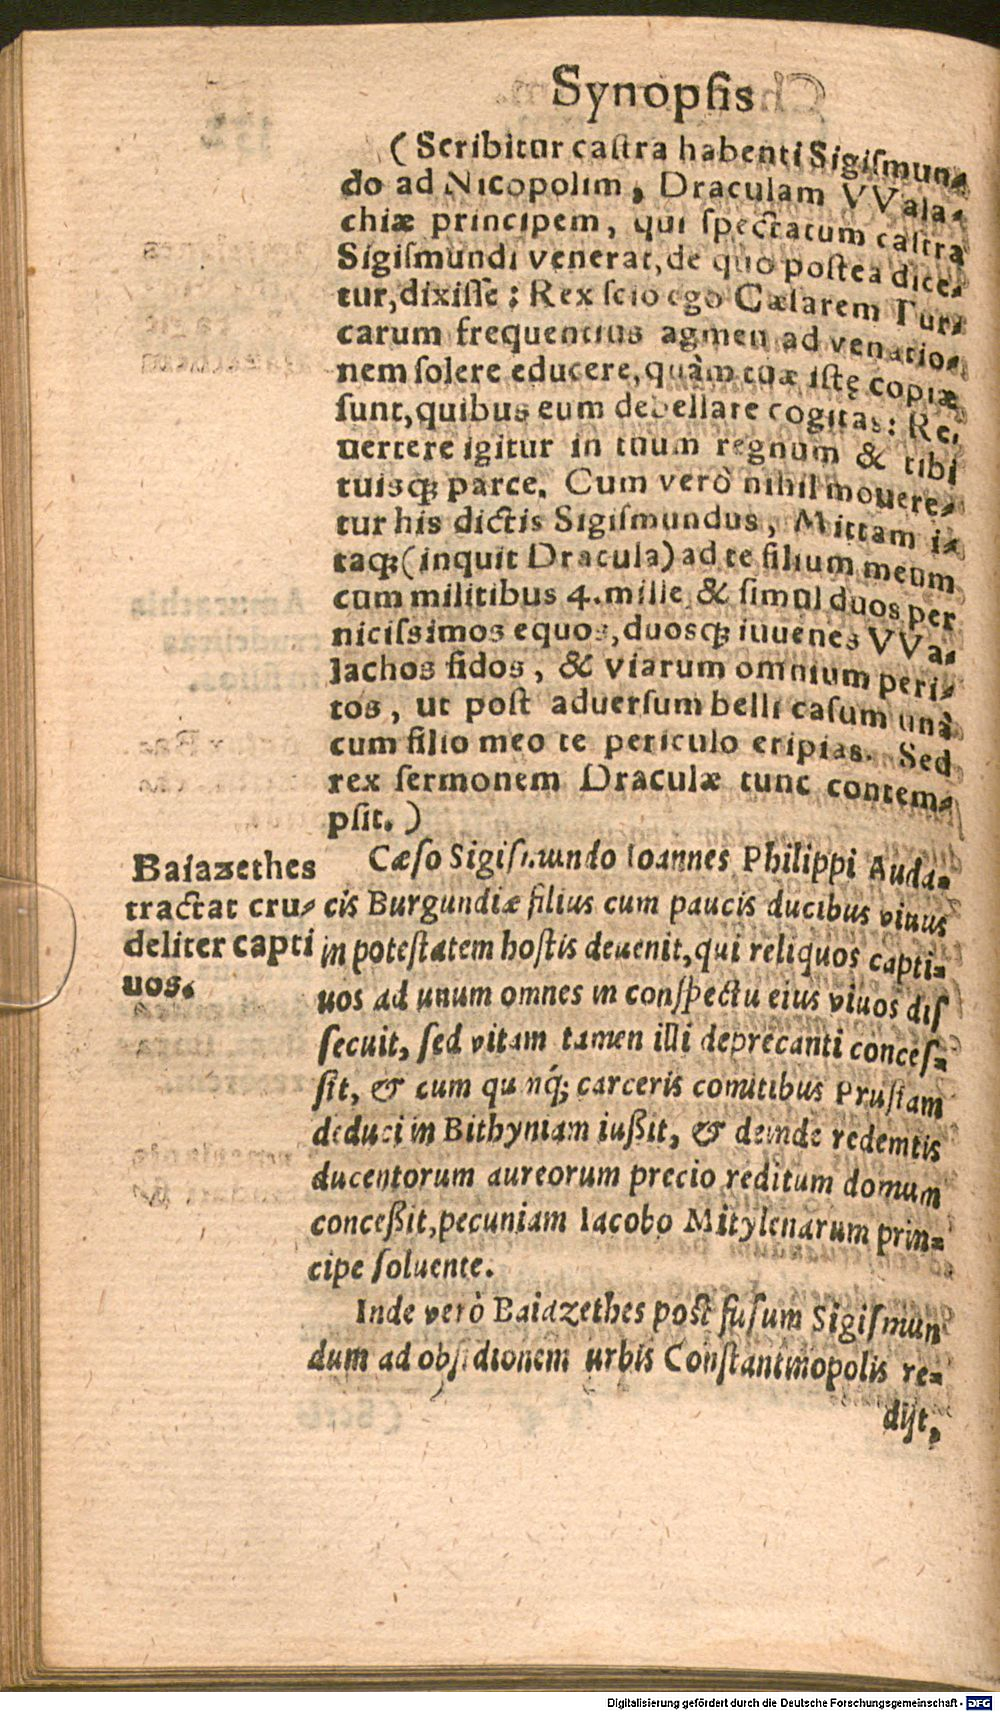 Synopsis
( Scribitur castra habenti Sigismun-
do ad Nicopolim, Draculam VVala-
chiæ principem, qui spectatum castra
Sigismundi venerat, de quo postea dice-
tur, dixisse: Rex scio ego Cæsarem Tur-
carum frequentius agmen ad venatio-
nem solere educere, quàm tuæ istę copiæ
sunt, quibus eum debellare cogitas: Re-
uertere igitur in tuum regnum & tibi
tuisq; parce. Cum verò nihil mouere-
tur his dictis Sigismundus, Mittam i-
taq; (inquit Dracula) ad te filium meum
cum militibus 4. mille, & simul duos per
nicissimos equos, duosq; iuuenes VVa-
lachos fidos, & viarum omnium peri-
tos, ut post aduersum belli casum unà
cum filio meo te periculo eripias. Sed
rex sermonem Draculæ tunc contem-
psit. )
Baiazethes
tractat cru-
deliter capti
uos.
Cæso Sigismundo Ioannes Philippi Auda-
cis Burgundiæ filius cum paucis ducibus viuus
in potestatem hostis deuenit, qui reliquos capti-
uos ad unum omnes in conspectu eius viuos dis
secuit, sed vitam tamen illi deprecanti conces-
sit, & cum quinq; carceris comitibus Prusiam
deduci in Bithyniam iußit, & deinde redemtis
ducentorum aureorum precio reditum domum
conceßit, pecuniam Iacobo Mitylenarum prin-
cipe soluente.
Inde verò Baiazethes post fusum Sigismun
dum ad obsidionem urbis Constantinopolis re-
dijt,
Digitalisierung gefördert durch die Deutsche Forschungsgemeinschaft - DFG